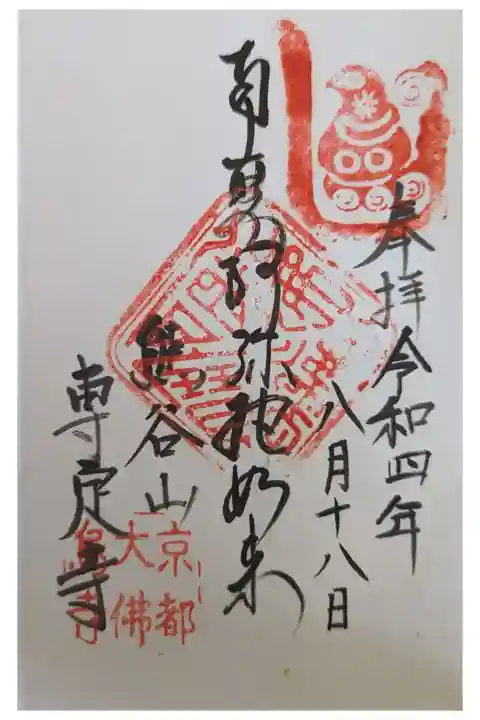 奉拝 令和四年
八月十八日
南無阿弥陀如来
熊谷山
専定寺
京都
大佛
烏寺